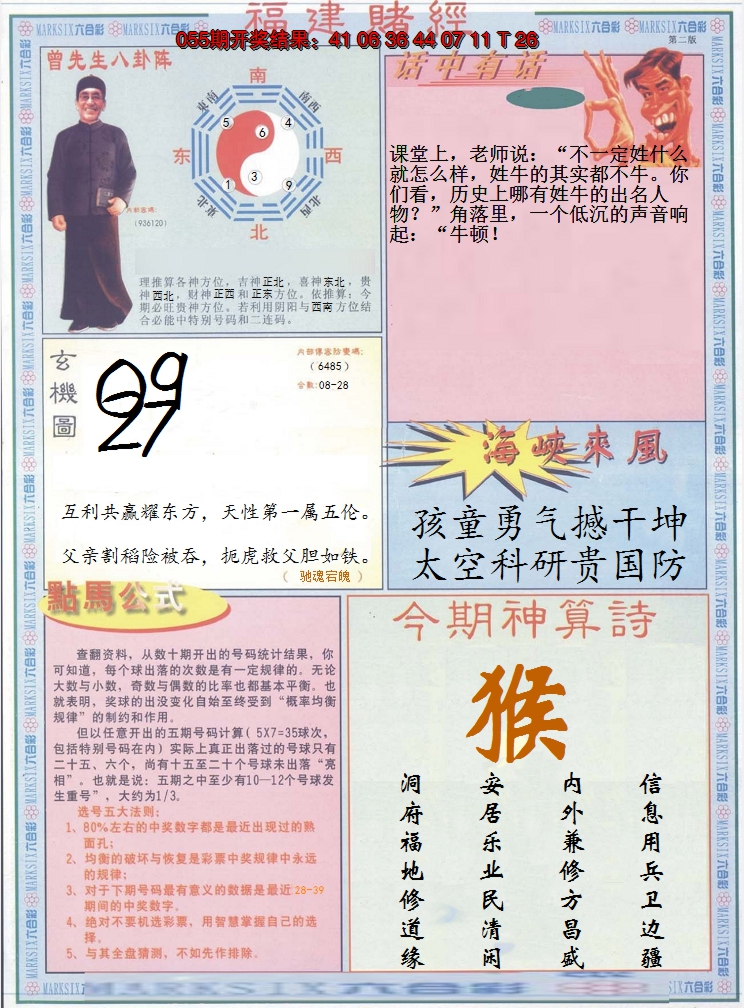 福建賭經
055期开奖结果：41 06 36 44 07 11 T 26
第二版
曾先生八卦阵
南
東南
南西
5
4
6
东
西
3
1
9
東北
北西
北
内部密碼:
(936120)
理推算各神方位，吉神正北，喜神东北，贵
神西北，财神正西和正东方位。依推算：今
期必旺贵神方位。若利用阴阳与西南方位结
合必能中特别号码和二连码。
话中有话
课堂上，老师说：“不一定姓什么
就怎么样，姓牛的其实都不牛。你
们看，历史上哪有姓牛的出名人
物？”角落里，一个低沉的声音响
起：“牛顿！
玄機圖
内部傳密防變碼:
(6485)
合數:08-28
互利共赢耀东方，天性第一属五伦。
父亲割稻险被吞，扼虎救父胆如铁。
（ 驰魂宕魄 ）
海峽來風
孩童勇气撼干坤
太空科研贵国防
點馬公式
查翻资料，从数十期开出的号码统计结果，你
可知道，每个球出落的次数是有一定规律的。无论
大数与小数，奇数与偶数的比率也都基本平衡。也
就表明，奖球的出没变化自始至终受到“概率均衡
规律”的制约和作用。
但以任意开出的五期号码计算( 5X7=35球次，
包括特别号码在内) 实际上真正出落过的号球只有
二十五、六个，尚有十五至二十个号球未出落“亮
相”。也就是说：五期之中至少有10—12个号球发
生重号”，大约为1/3。
选号五大法则：
1、80%左右的中奖数字都是最近出现过的熟
面孔；
2、均衡的破坏与恢复是彩票中奖规律中永远
的规律；
3、对于下期号码最有意义的数据是最近28-39
期间的中奖数字。
4、绝对不要机选彩票，用智慧掌握自己的选
择。
5、与其全盘猜测，不如先作排除。
今期神算詩
猴
洞府福地修道缘
安居乐业民清闲
内外兼修方昌盛
信息用兵卫边疆
MARKSIX六合彩